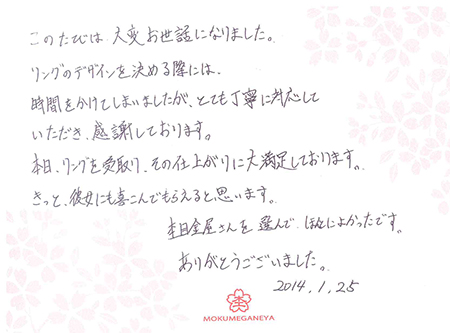 このたびは、大変お世話になりました。
リングのデザインを決める際には、
時間をかけてしまいましたが、とても丁寧に対応して
いただき、感謝しております。
本日、リングを受取り、その仕上がりに大満足しております。
きっと、彼女にも喜こんでもらえると思います。
杢目金屋さんを選んで、ほんとによかったです。
ありがとうございました。
2014.1.25
杢
MOKUMEGANEYA